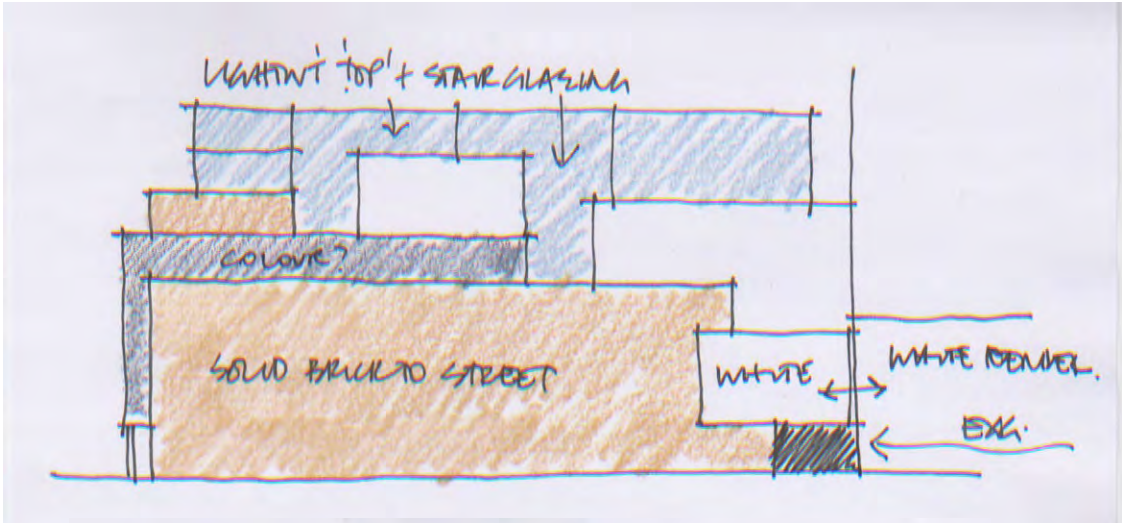 LIGHTWT 'TOP' + STAIR GLAZING
COLOUR?
SOLID BRICK TO STREET
WHITE
WHITE RENDER.
EXG.